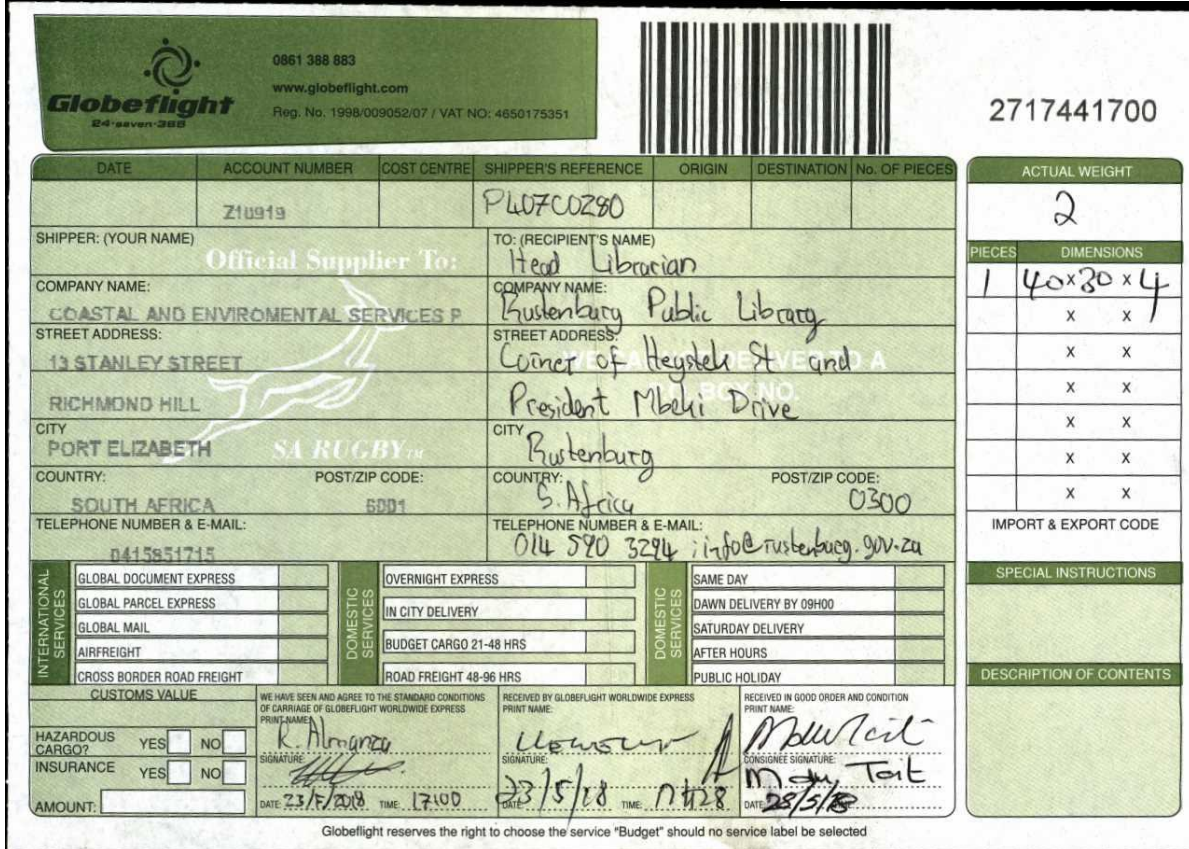 Globeflight
24-seven-365
0861 388 883
www.globeflight.com
Reg. No. 1998/009052/07 / VAT NO: 4650175351
2717441700
DATE ACCOUNT NUMBER COST CENTRE SHIPPER'S REFERENCE ORIGIN DESTINATION No. OF PIECES
Z10919 P407C0280
ACTUAL WEIGHT
2
PIECES DIMENSIONS
1 40 x 30 x 4
x x
x x
x x
x x
x x
x x
IMPORT & EXPORT CODE
SPECIAL INSTRUCTIONS
DESCRIPTION OF CONTENTS
SHIPPER: (YOUR NAME)
Official Supplier To:
COMPANY NAME:
COASTAL AND ENVIROMENTAL SERVICES P
STREET ADDRESS:
13 STANLEY STREET
RICHMOND HILL
CITY
PORT ELIZABETH
SA RUGBY TM
COUNTRY: POST/ZIP CODE:
SOUTH AFRICA 6001
TELEPHONE NUMBER & E-MAIL:
0415851715
TO: (RECIPIENT'S NAME)
Head Librarian
COMPANY NAME:
Rustenburg Public Library
STREET ADDRESS:
Corner of Heystek St and
President Mbeki Drive
CITY
Rustenburg
COUNTRY: POST/ZIP CODE:
S. Africa 0300
TELEPHONE NUMBER & E-MAIL:
014 590 3294 ; info@rustenburg.gov.za
INTERNATIONAL SERVICES
GLOBAL DOCUMENT EXPRESS
GLOBAL PARCEL EXPRESS
GLOBAL MAIL
AIRFREIGHT
CROSS BORDER ROAD FREIGHT
DOMESTIC SERVICES
OVERNIGHT EXPRESS
IN CITY DELIVERY
BUDGET CARGO 21-48 HRS
ROAD FREIGHT 48-96 HRS
DOMESTIC SERVICES
SAME DAY
DAWN DELIVERY BY 09H00
SATURDAY DELIVERY
AFTER HOURS
PUBLIC HOLIDAY
CUSTOMS VALUE
HAZARDOUS CARGO? YES NO
INSURANCE YES NO
AMOUNT:
WE HAVE SEEN AND AGREE TO THE STANDARD CONDITIONS
OF CARRIAGE OF GLOBEFLIGHT WORLDWIDE EXPRESS
PRINT NAME:
R. Almanza
SIGNATURE:
DATE: 23/5/2018 TIME: 17:00
RECEIVED BY GLOBEFLIGHT WORLDWIDE EXPRESS
PRINT NAME:
SIGNATURE:
DATE: 23/5/18 TIME: 17H28
RECEIVED IN GOOD ORDER AND CONDITION
PRINT NAME:
CONSIGNEE SIGNATURE:
Tait
DATE: 28/5/18
Globeflight reserves the right to choose the service "Budget" should no service label be selected